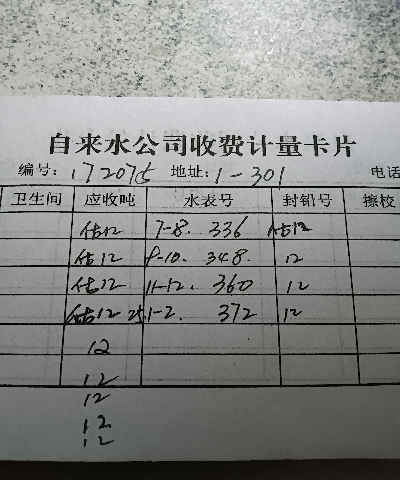 自来水公司收费计量卡片
编号: 172075 地址: 1-301 电话
卫生间 应收吨 水表号 封铅号 擦校
估12 7-8. 336 估12
估12 9-10. 348. 12
估12 11-12. 360 12
估12 25. 1-2. 372 12
12
12
12
12
12